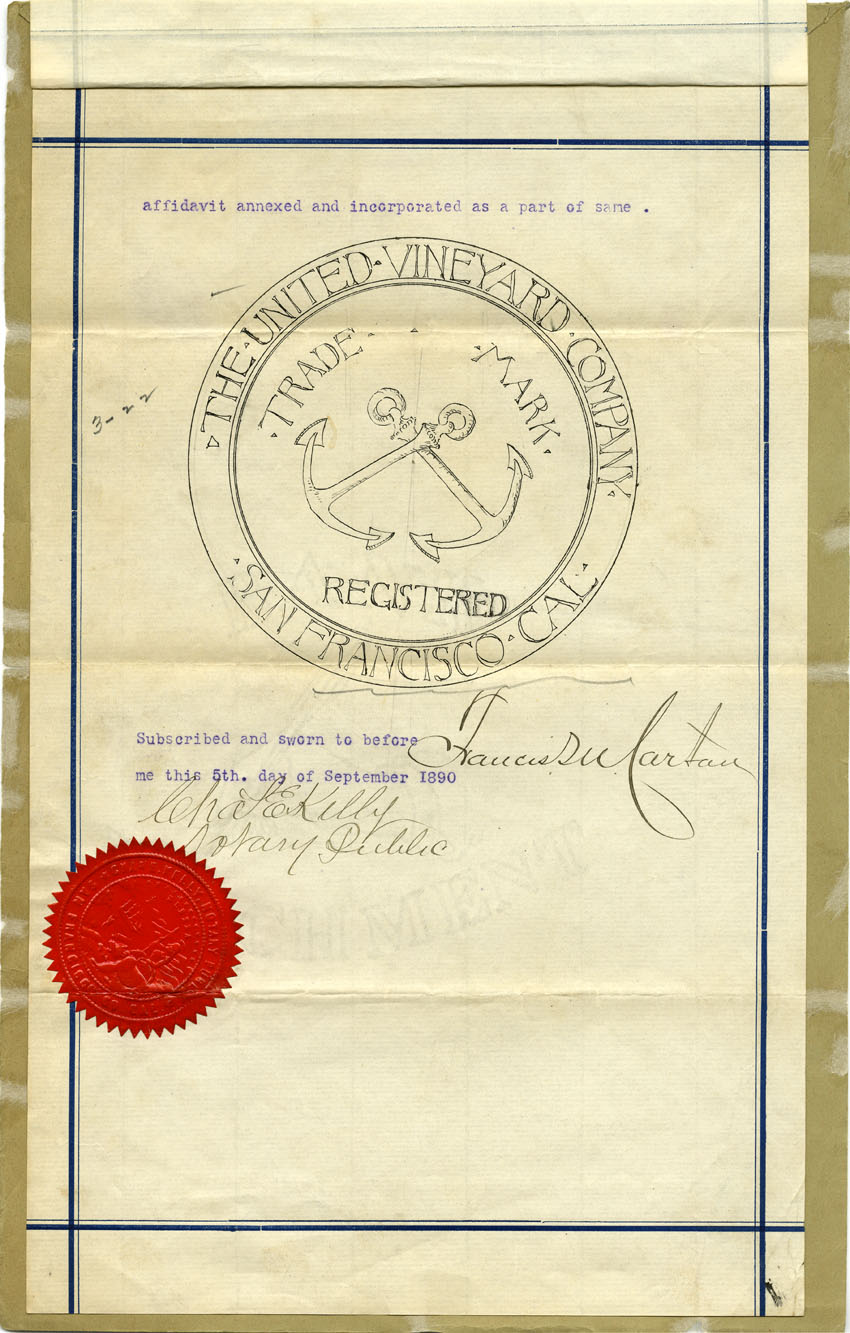 affidavit annexed and incorporated as a part of same .
THE · UNITED · VINEYARD · COMPANY
TRADE MARK
3-22
REGISTERED
SAN FRANCISCO · CAL
Subscribed and sworn to before
me this 5th. day of September I890
Francis
Notary Public